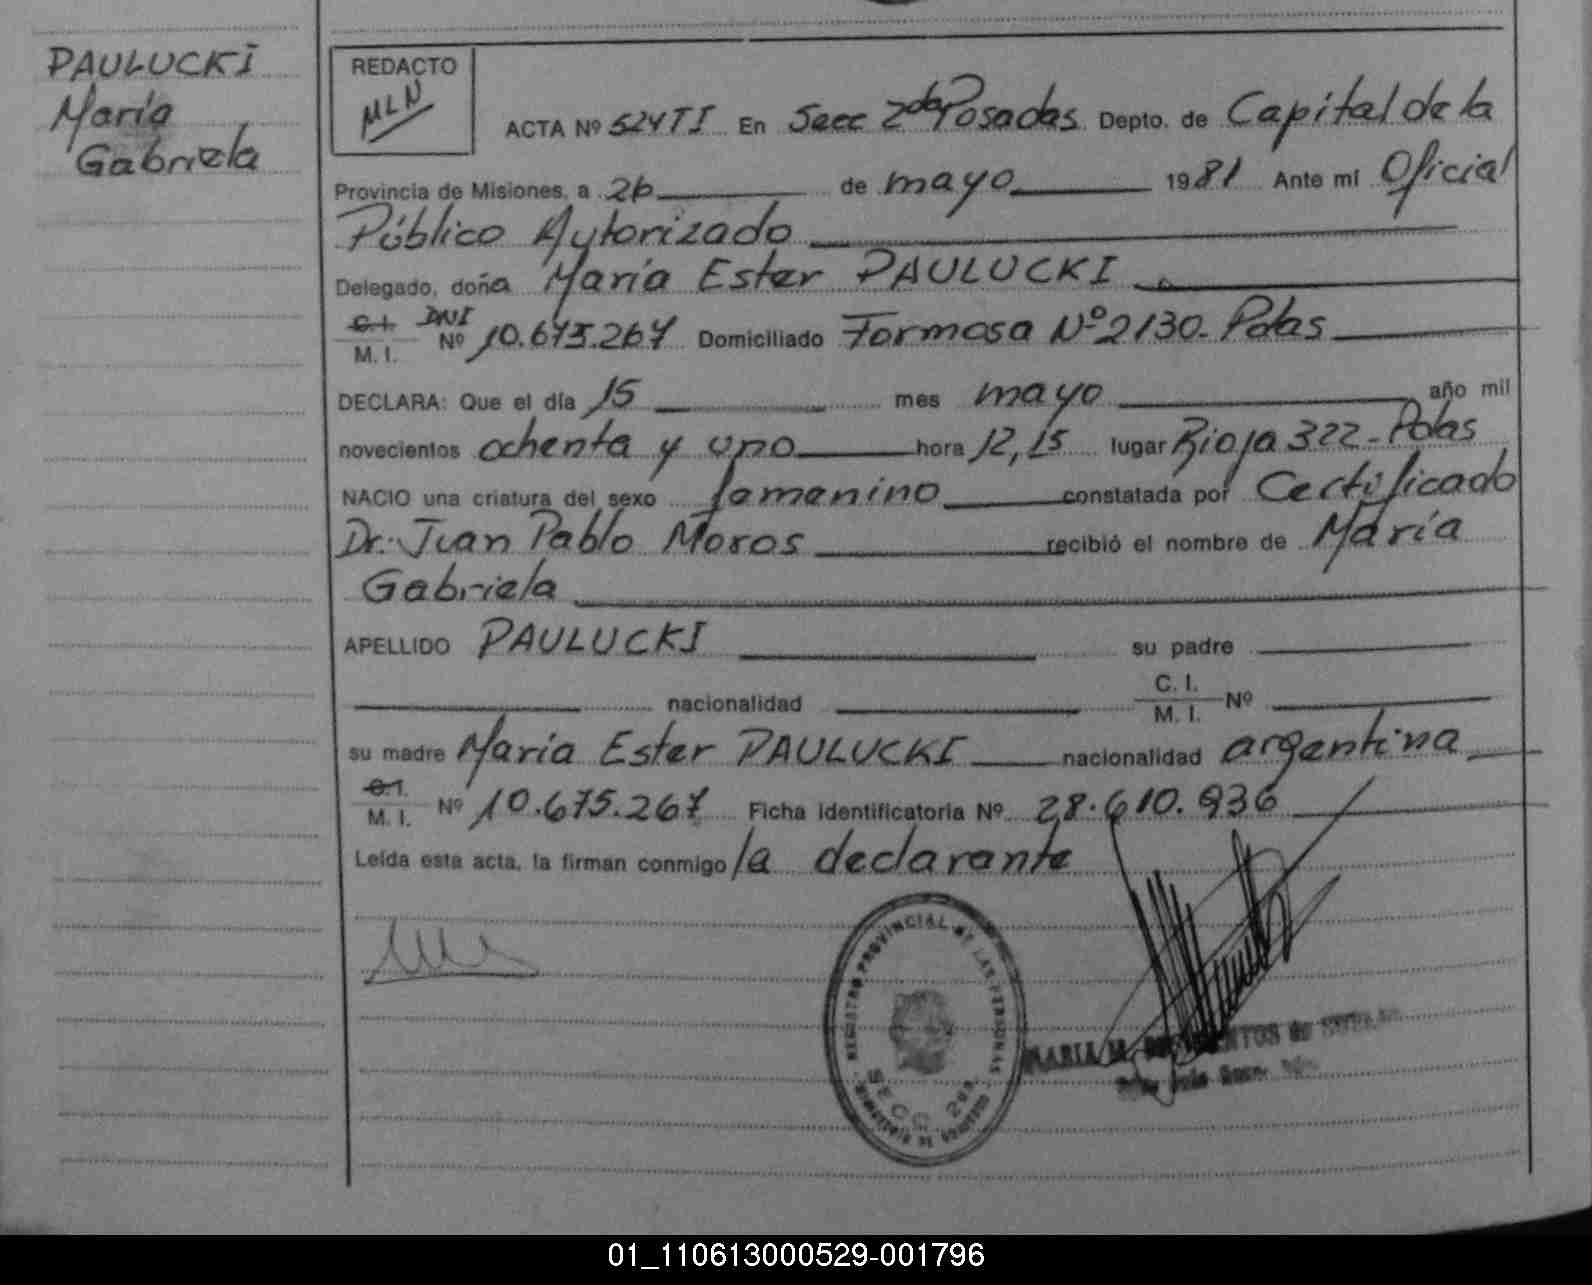 PAULUCKI
María
Gabriela
REDACTO
MLN
ACTA Nº 524 TI En Secc 2da Posadas Depto. de Capital de la
Provincia de Misiones, a 26 de mayo 1981 Ante mí Oficial
Público Autorizado
Delegado, doña María Ester PAULUCKI
C.I. DNI
M. I. Nº 10.675.267 Domiciliado Formosa Nº 2130- Pdas
DECLARA: Que el día 15 mes mayo año mil
novecientos ochenta y uno hora 12,15 lugar Rioja 322- Pdas
NACIO una criatura del sexo femenino constatada por Certificado
Dr. Juan Pablo Moros recibió el nombre de María
Gabriela
APELLIDO PAULUCKI su padre
nacionalidad C. I. M. I. Nº
su madre María Ester PAULUCKI nacionalidad argentina
C.I. M. I. Nº 10.675.267 Ficha identificatoria Nº 28.610.936
Leída esta acta, la firman conmigo la declarante
REGISTRO PROVINCIAL DE LAS PERSONAS
SECC. 2da.
MARIA M. de
01_110613000529-001796